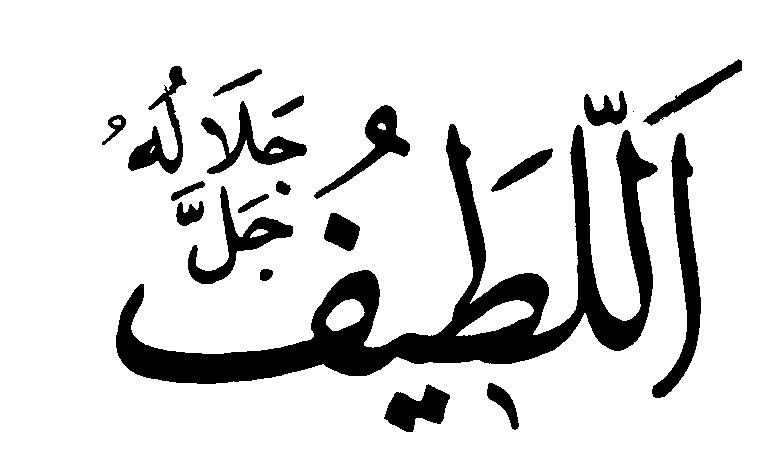 اَللَّطِيفُ
جَلَّ جَلَالُهُ